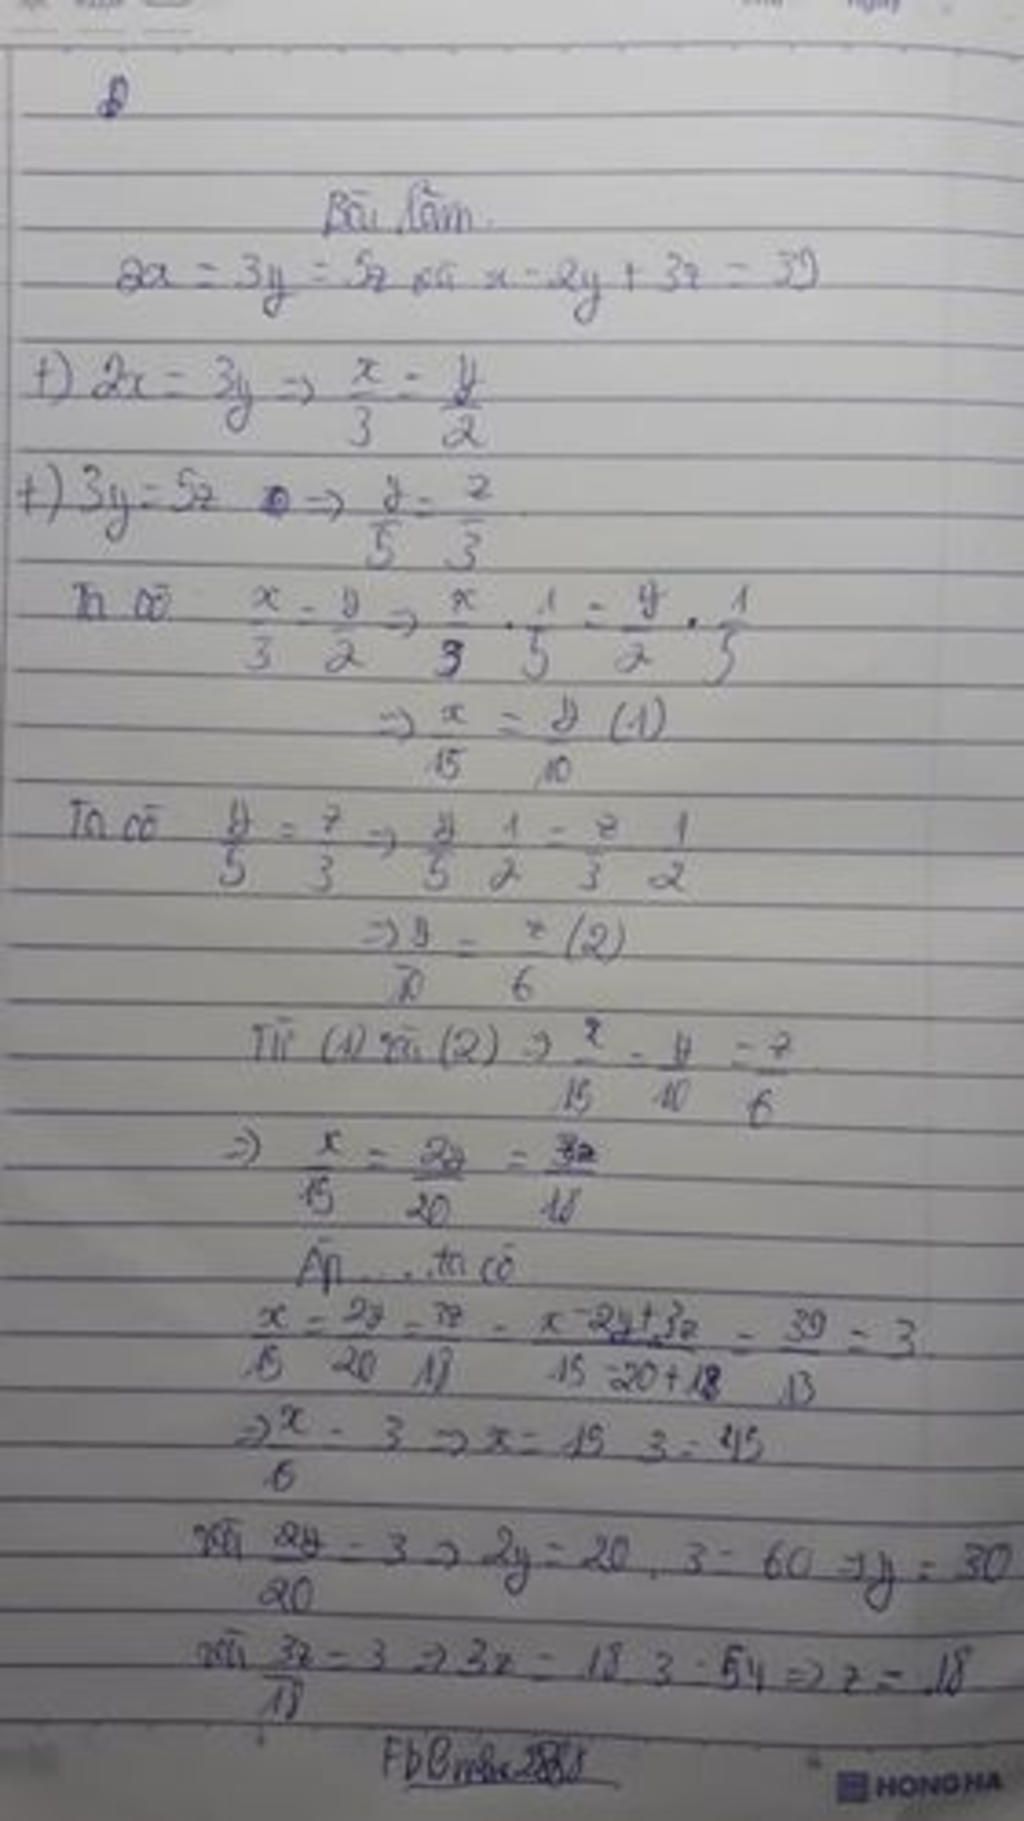 Bài làm.
2x = 3y = 5z và x - 2y + 3z = 39
+) 2x = 3y => x/3 = y/2
+) 3y = 5z => y/5 = z/3
Ta có x/3 = y/2 => x/3 . 1/5 = y/2 . 1/5
=> x/15 = y/10 (1)
Ta có y/5 = z/3 => y/5 1/2 = z/3 1/2
=> y/10 = z/6 (2)
Từ (1) và (2) => x/15 = y/10 = z/6
=> x/15 = 2y/20 = 3z/18
Áp .... ta có
x/15 = 2y/20 = 3z/18 = x-2y+3z/15-20+18 = 39/13 = 3
=> x/15 = 3 => x = 15 3 = 45
và 2y/20 = 3 => 2y = 20 . 3 = 60 => y = 30
và 3z/18 = 3 => 3z = 18 3 = 54 => z = 18
HONG HA